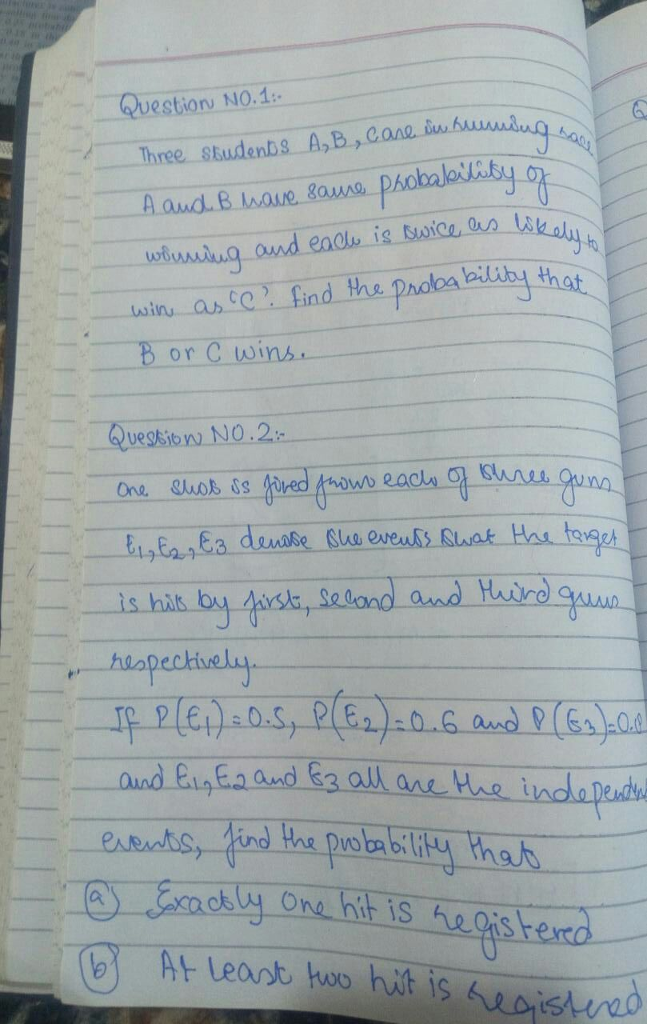 Question NO.1:-
Three students A, B, C are in running race
A and B have same probability of
winning and each is twice as likely to
win as 'C'. find the probability that
B or C wins.
Question NO.2:-
One shot is fired from each of three guns
E1, E2, E3 denote the events that the target
is hit by first, second and third guns
respectively.
If P(E1)=0.5, P(E2)=0.6 and P(E3)=0.8
and E1, E2 and E3 all are the independent
events, find the probability that
(a) Exactly One hit is registered
(b) At least two hit is registered